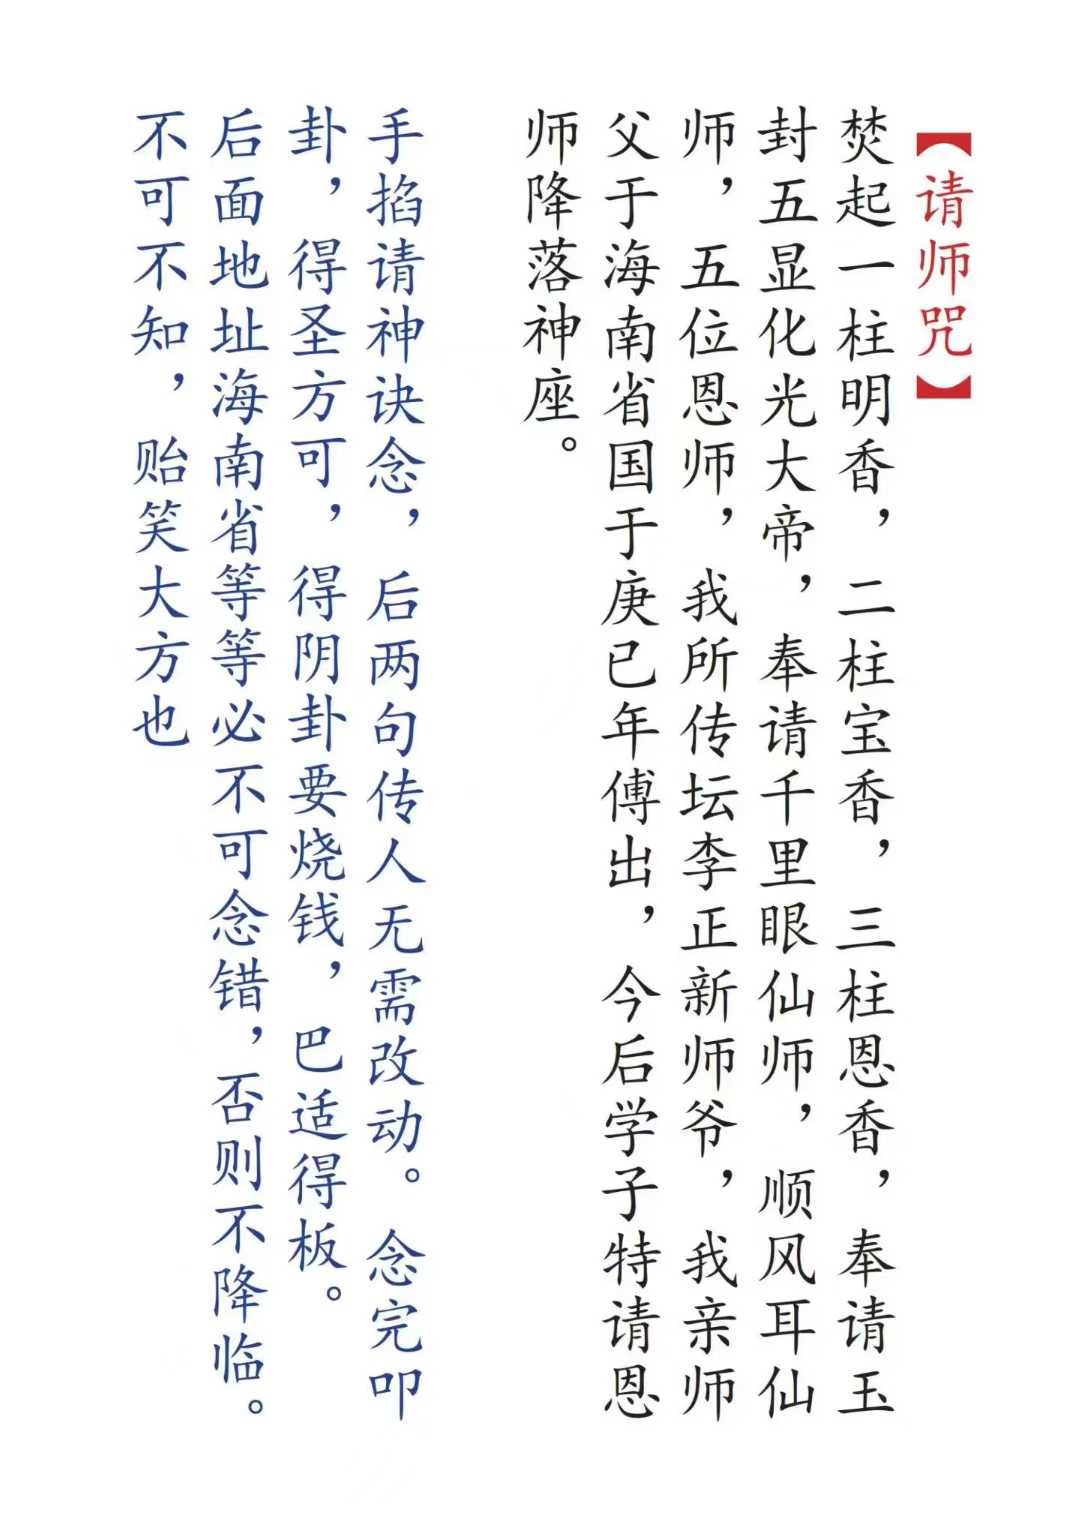 【请师咒】
焚起一柱明香，二柱宝香，三柱恩香，奉请玉
封五显化光大帝，奉请千里眼仙师，顺风耳仙
师，五位恩师，我所传坛李正新师爷，我亲师
父于海南省国于庚已年傅出，今后学子特请恩
师降落神座。
手掐请神诀念，后两句传人无需改动。念完叩
卦，得圣方可，得阴卦要烧钱，巴适得板。
后面地址海南省等等必不可念错，否则不降临。
不可不知，贻笑大方也